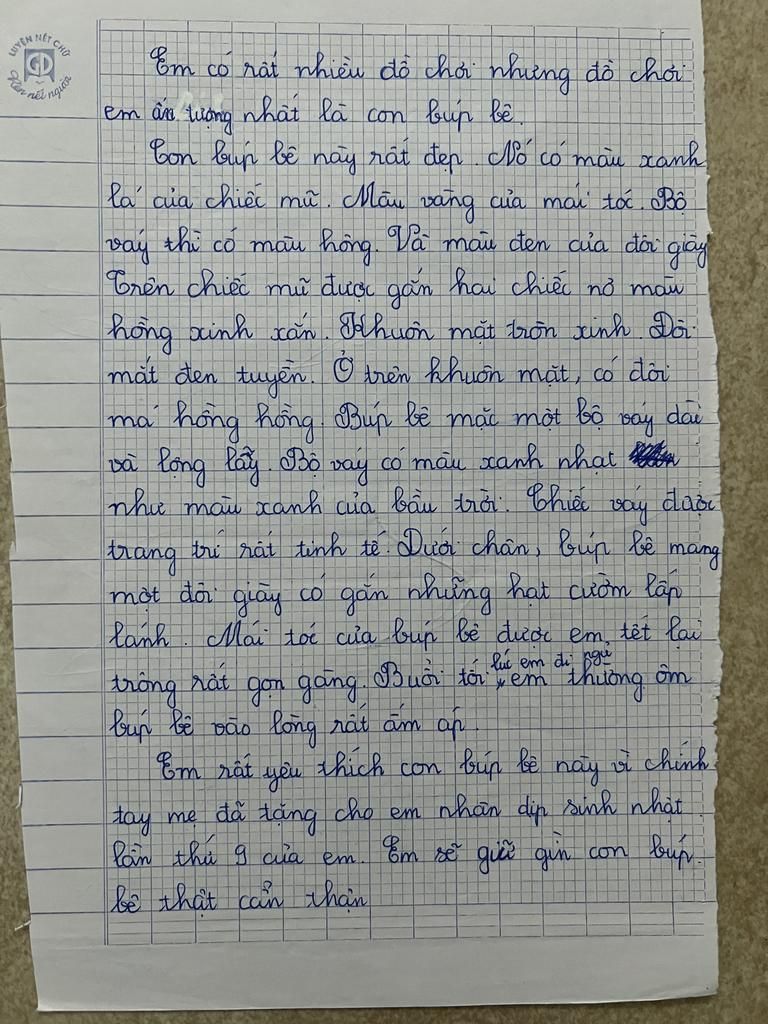 LUYỆN NÉT CHỮ
GD
Rèn nết người
Em có rất nhiều đồ chơi nhưng đồ chơi
em ấn tượng nhất là con búp bê.
Con búp bê này rất đẹp. Nó có màu xanh
lá của chiếc mũ. Màu vàng của mái tóc. Bộ
váy thì có màu hồng. Và màu đen của đôi giày
Trên chiếc mũ được gắn hai chiếc nơ màu
hồng xinh xắn. Khuôn mặt tròn xinh. Đôi
mắt đen tuyền. Ở trên khuôn mặt, có đôi
má hồng hồng. Búp bê mặc một bộ váy dài
và lộng lẫy. Bộ váy có màu xanh nhạt
như màu xanh của bầu trời. Chiếc váy được
trang trí rất tinh tế. Dưới chân, búp bê mang
một đôi giày có gắn những hạt cườm lấp
lánh. Mái tóc của búp bê được em tết lại
trông rất gọn gàng. Buổi tối lúc em đi ngủ, em thường ôm
búp bê vào lòng rất ấm áp.
Em rất yêu thích con búp bê này vì chính
tay mẹ đã tặng cho em nhân dịp sinh nhật
lần thứ 9 của em. Em sẽ giữ gìn con búp
bê thật cẩn thận